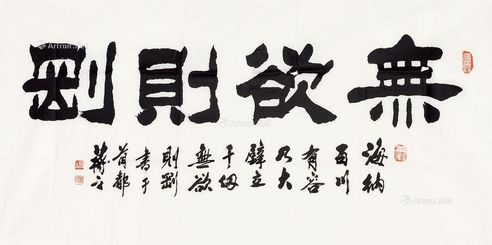 無欲則剛
海納
百川
有容
乃大
壁立
千仞
無欲
則剛
書于
首都
蔣
Artron.Net